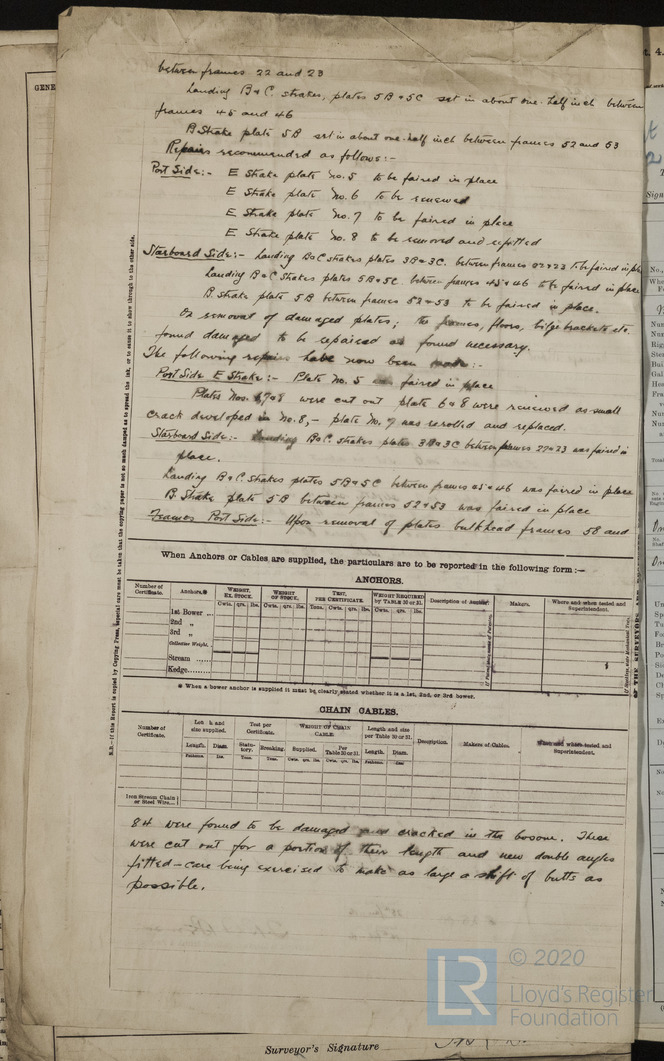 between frames 22 and 23
Landing B & C. strakes, plates 5B & 5C set in about one-half inch between
frames 45 and 46
B Strake plate 5B set in about one-half inch between frames 52 and 53
Repairs recommended as follows:-
Port Side:- E Strake plate No. 5 to be faired in place
E Strake plate No. 6 to be renewed
E Strake plate No. 7 to be faired in place
E Strake plate No. 8 to be removed and refitted
Starboard Side:- Landing B & C strakes plates 3B & 3C. between frames 22 & 23 to be faired in place
Landing B & C Strakes plates 5B & 5C. between frames 45 & 46 to be faired in place
B. Strake plate 5B between frames 52 & 53 to be faired in place.
On removal of damaged plates; the frames, floors, bilge brackets etc.
found damaged to be repaired as found necessary.
The following repairs have now been made:-
Port Side E Strake:- Plate No. 5 faired in place
Plates Nos. 6, 7 & 8 were cut out plate 6 & 8 were renewed as small
crack developed in No. 8,- plate No. 7 was rerolled and replaced.
Starboard Side:- Landing B & C. strakes plates 3B & 3C between frames 22 & 23 was faired in
place.
Landing B & C. Strakes plates 5B & 5C between frames 45 & 46 was faired in place
B. Strake plate 5B between frames 52 & 53 was faired in place
Frames Port Side:- Upon removal of plates bulkhead frames 58 and
When Anchors or Cables are supplied, the particulars are to be reported in the following form:—
ANCHORS.
Number of Certificate. Anchors.* WEIGHT, EX. STOCK. WEIGHT OF STOCK. TEST, PER CERTIFICATE. WEIGHT REQUIRED by TABLE 30 or 31. Description of Anchor. Makers. Where and when tested and Superintendent.
Cwts. qrs. lbs. Cwts. qrs. lbs. Tons. Cwts. qrs. lbs. Cwts. qrs. lbs.
1st Bower ...
2nd „
3rd „
Collective Weight.
Stream ......
Kedge........
* When a bower anchor is supplied it must be clearly stated whether it is a 1st, 2nd, or 3rd bower.
CHAIN CABLES.
Number of Certificate. Length and size supplied. Test per Certificate. WEIGHT OF CHAIN CABLE. Length and size per Table 30 or 31. Description. Makers of Cables. Where and when tested and Superintendent.
Length. Diam. Statutory. Breaking. Supplied. Per Table 30 or 31. Length. Diam.
Fathoms. Ins. Tons. Tons. Cwts. qrs. lbs. Cwts. qrs. lbs. Fathoms. Ins.
Iron Stream Chain or Steel Wire...
84 were found to be damaged and cracked in the bosom. These
were cut out for a portion of their length and new double angles
fitted - care being exercised to make as large a shift of butts as
possible.
N.B.—If this Report is copied by Copying Press, especial care must be taken that the copying paper is not so much damped as to spread the ink, or to cause it to show through to the other side.
GENE
Surveyor's Signature
LR
© 2020
Lloyd's Register
Foundation